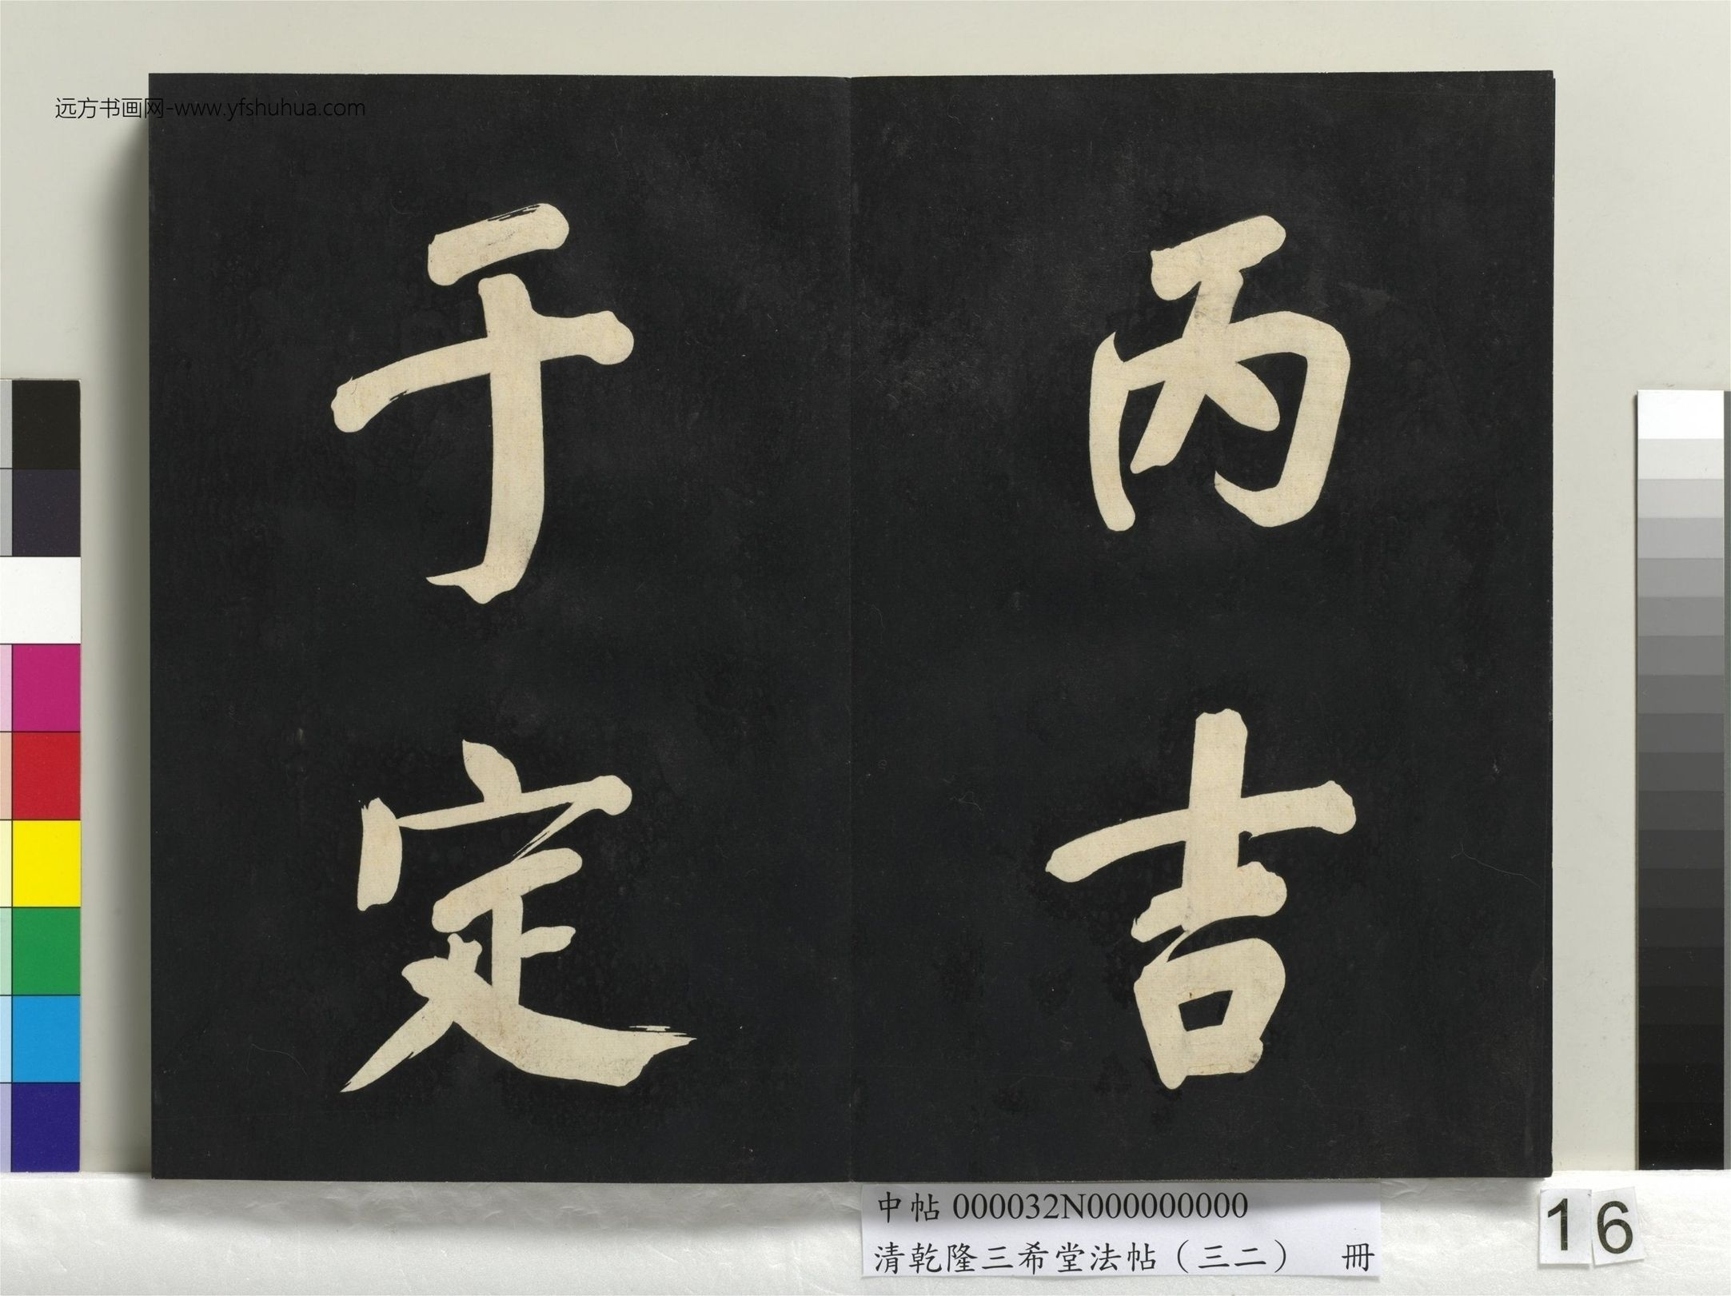 远方书画网-www.yfshuhua.com
丙吉
于定
中帖 000032N000000000
清乾隆三希堂法帖（三二） 冊
16